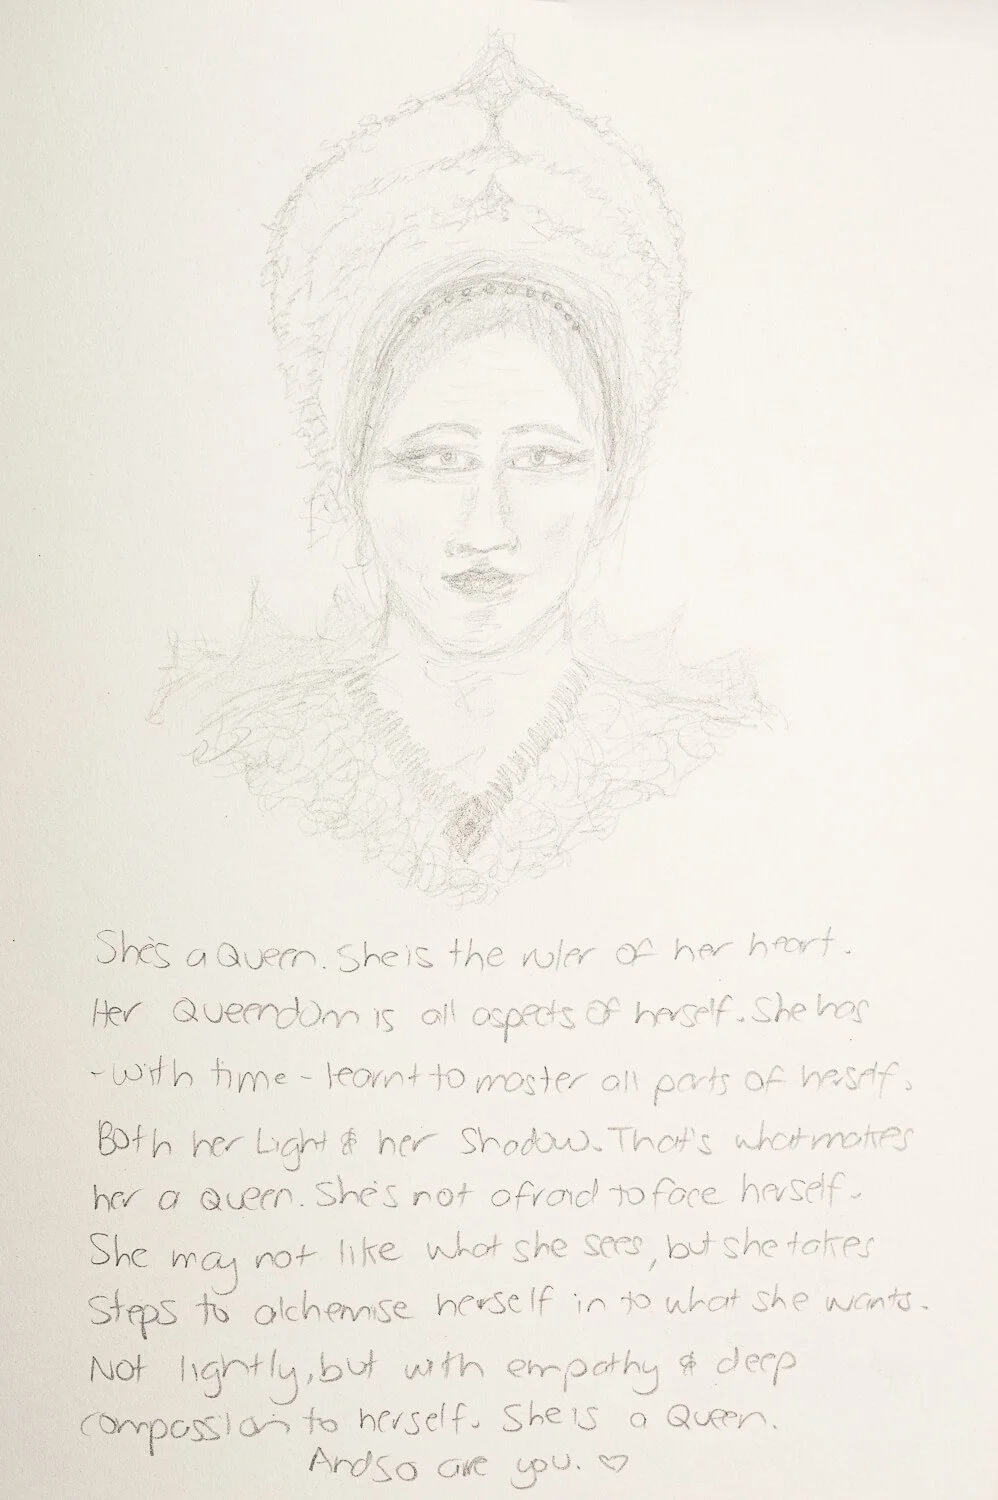 She's a Queen. She is the ruler of her heart.
Her Queendom is all aspects of herself. She has
- with time - learnt to master all parts of herself.
Both her Light & her Shadow. That's what makes
her a Queen. She's not afraid to face herself.
She may not like what she sees, but she takes
Steps to alchemise herself in to what she wants.
Not lightly, but with empathy & deep
compassion to herself. She is a Queen.
And so are you. ♡